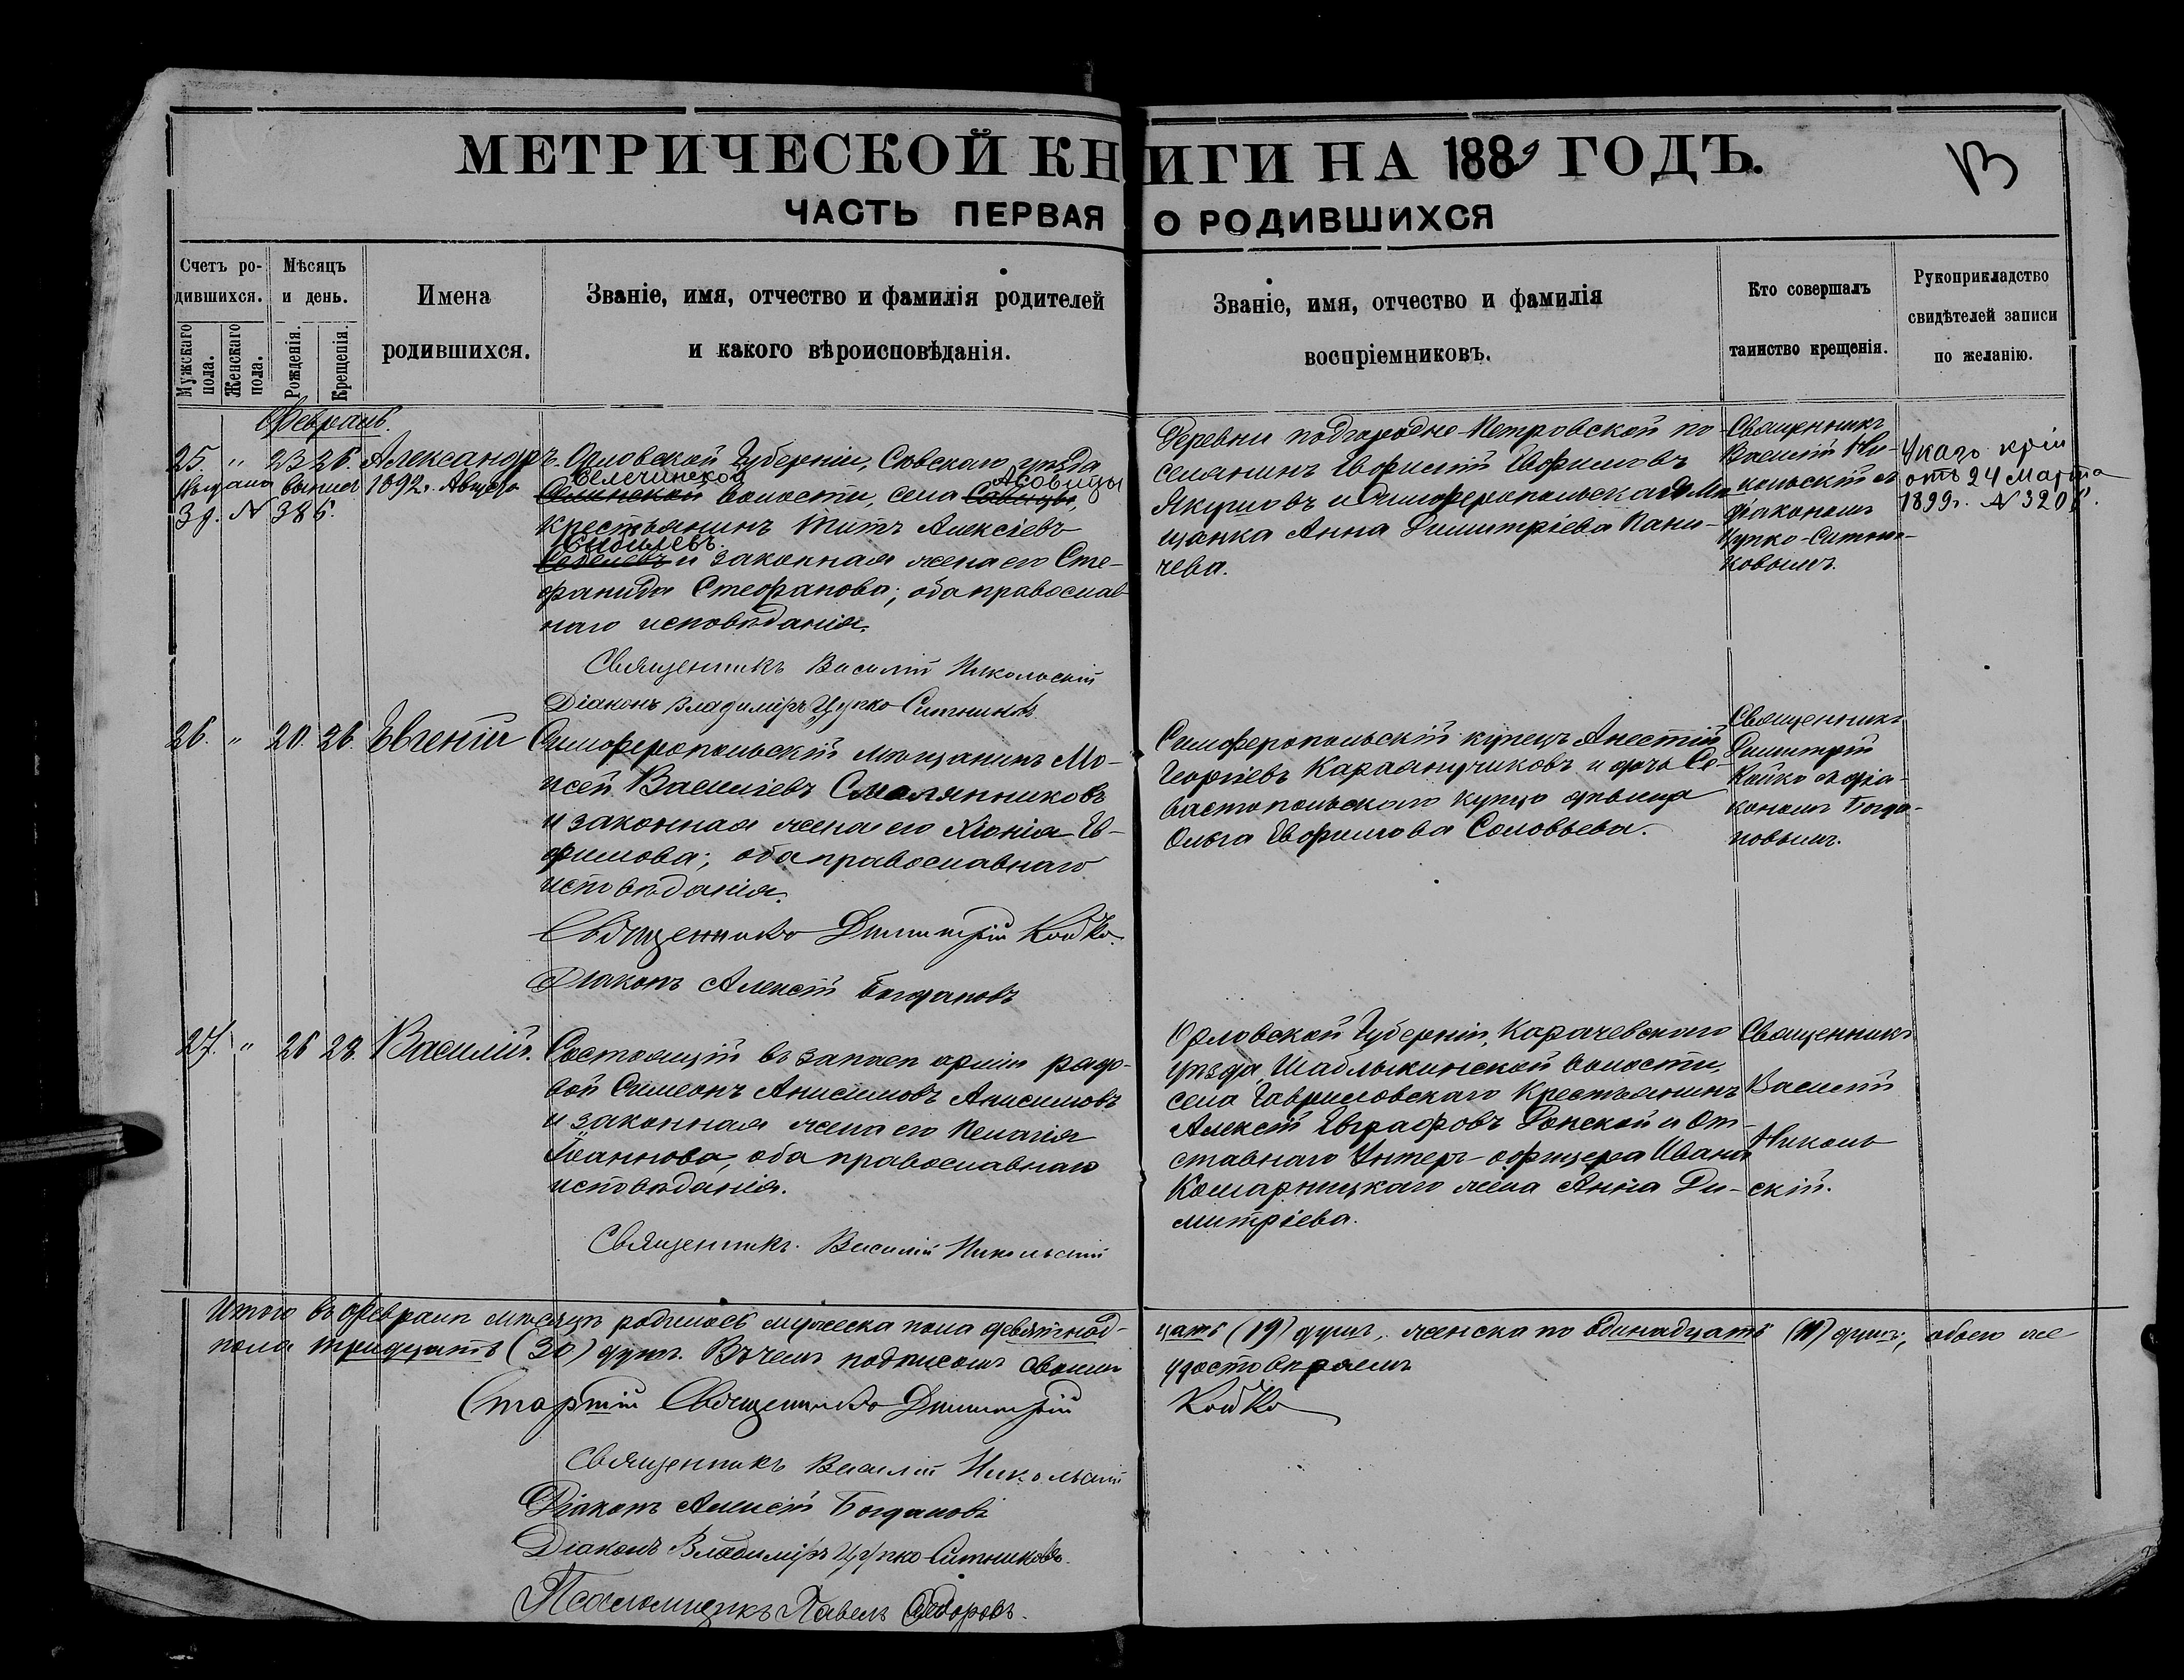 МЕТРИЧЕСКОЙ КНИГИ НА 1889 ГОДЪ.
13
ЧАСТЬ ПЕРВАЯ О РОДИВШИХСЯ
Счетъ родившихся.
Мужскаго пола.
Женскаго пола.
Мѣсяцъ и день.
Рожденія.
Крещенія.
Имена
родившихся.
Званіе, имя, отчество и фамилія родителей
и какого вѣроисповѣданія.
Званіе, имя, отчество и фамилія
воспріемниковъ.
Кто совершалъ
таинство крещенія.
Рукоприкладство
свидѣтелей записи
по желанію.
Февраль.
25. " 23 26. Александръ.
Выдана выпись 1892 г. Августа
3 д. № 386.
Орловской Губерніи, Сѣвскаго уѣзда
Велечинской Асовицы
волости, села
крестьянинъ Титъ Алексіевъ
и законная жена его Сте-
фанида Стефанова; оба православ-
наго исповѣданія.
Священникъ Василій Никольскій
Діаконъ Владиміръ Цупко-Ситниковъ
Деревни подгородне-Петровской по-
селянинъ Евфимій Евфимовъ
Якушовъ и Симферопольская мѣ-
щанка Анна Димитріева Пани-
чева.
Священникъ
Василій Ни-
кольскій съ
діакономъ
Цупко-Ситни-
ковымъ.
Указъ
отъ 24 Марта
1899 г. №
26. " 20. 26. Евгеній
Симферопольскій мѣщанинъ Мо-
исей Василіевъ Смолянниковъ
и законная жена его Хіонія Ев-
фимова; оба православнаго
исповѣданія.
Священникъ Димитрій Койко.
Діаконъ Алексій Богдановъ
Симферопольскій купецъ Анестій
Георгіевъ и дочь Се-
вастопольскаго купца дѣвица
Ольга Евфимова Соловьева.
Священникъ
Димитрій
Койко съ діа-
кономъ Богда-
новымъ.
27. " 26 28. Василій.
Состоящій въ запасѣ арміи рядо-
вой Симеонъ Анисимовъ Анисимовъ
и законная жена его Пелагія
Іоаннова, оба православнаго
исповѣданія.
Священникъ Василій Никольскій
Орловской Губерніи, Карачевскаго
уѣзда, Шаблыкинской волости,
села Гавриловскаго Крестьянинъ
Алексій Евграфовъ Донской и От-
ставнаго Унтеръ-офицера Ивана
Комарницкаго жена Анна Ди-
митріева.
Священникъ
Василій
Николь
скій.
Итого въ Февралѣ мѣсяцѣ родилось мужеска пола девятнад-
цать (19) душъ, женска по одинадцать (11) душъ, обоего же
пола тридцать (30) душъ. Въ чемъ подписомъ своимъ
удостовѣряемъ
Старшій Священникъ Димитрій Койко
Священникъ Василій Никольскій
Діаконъ Алексій Богдановъ
Діаконъ Владиміръ Цупко-Ситниковъ.
Псаломщикъ Павелъ Федоровъ.